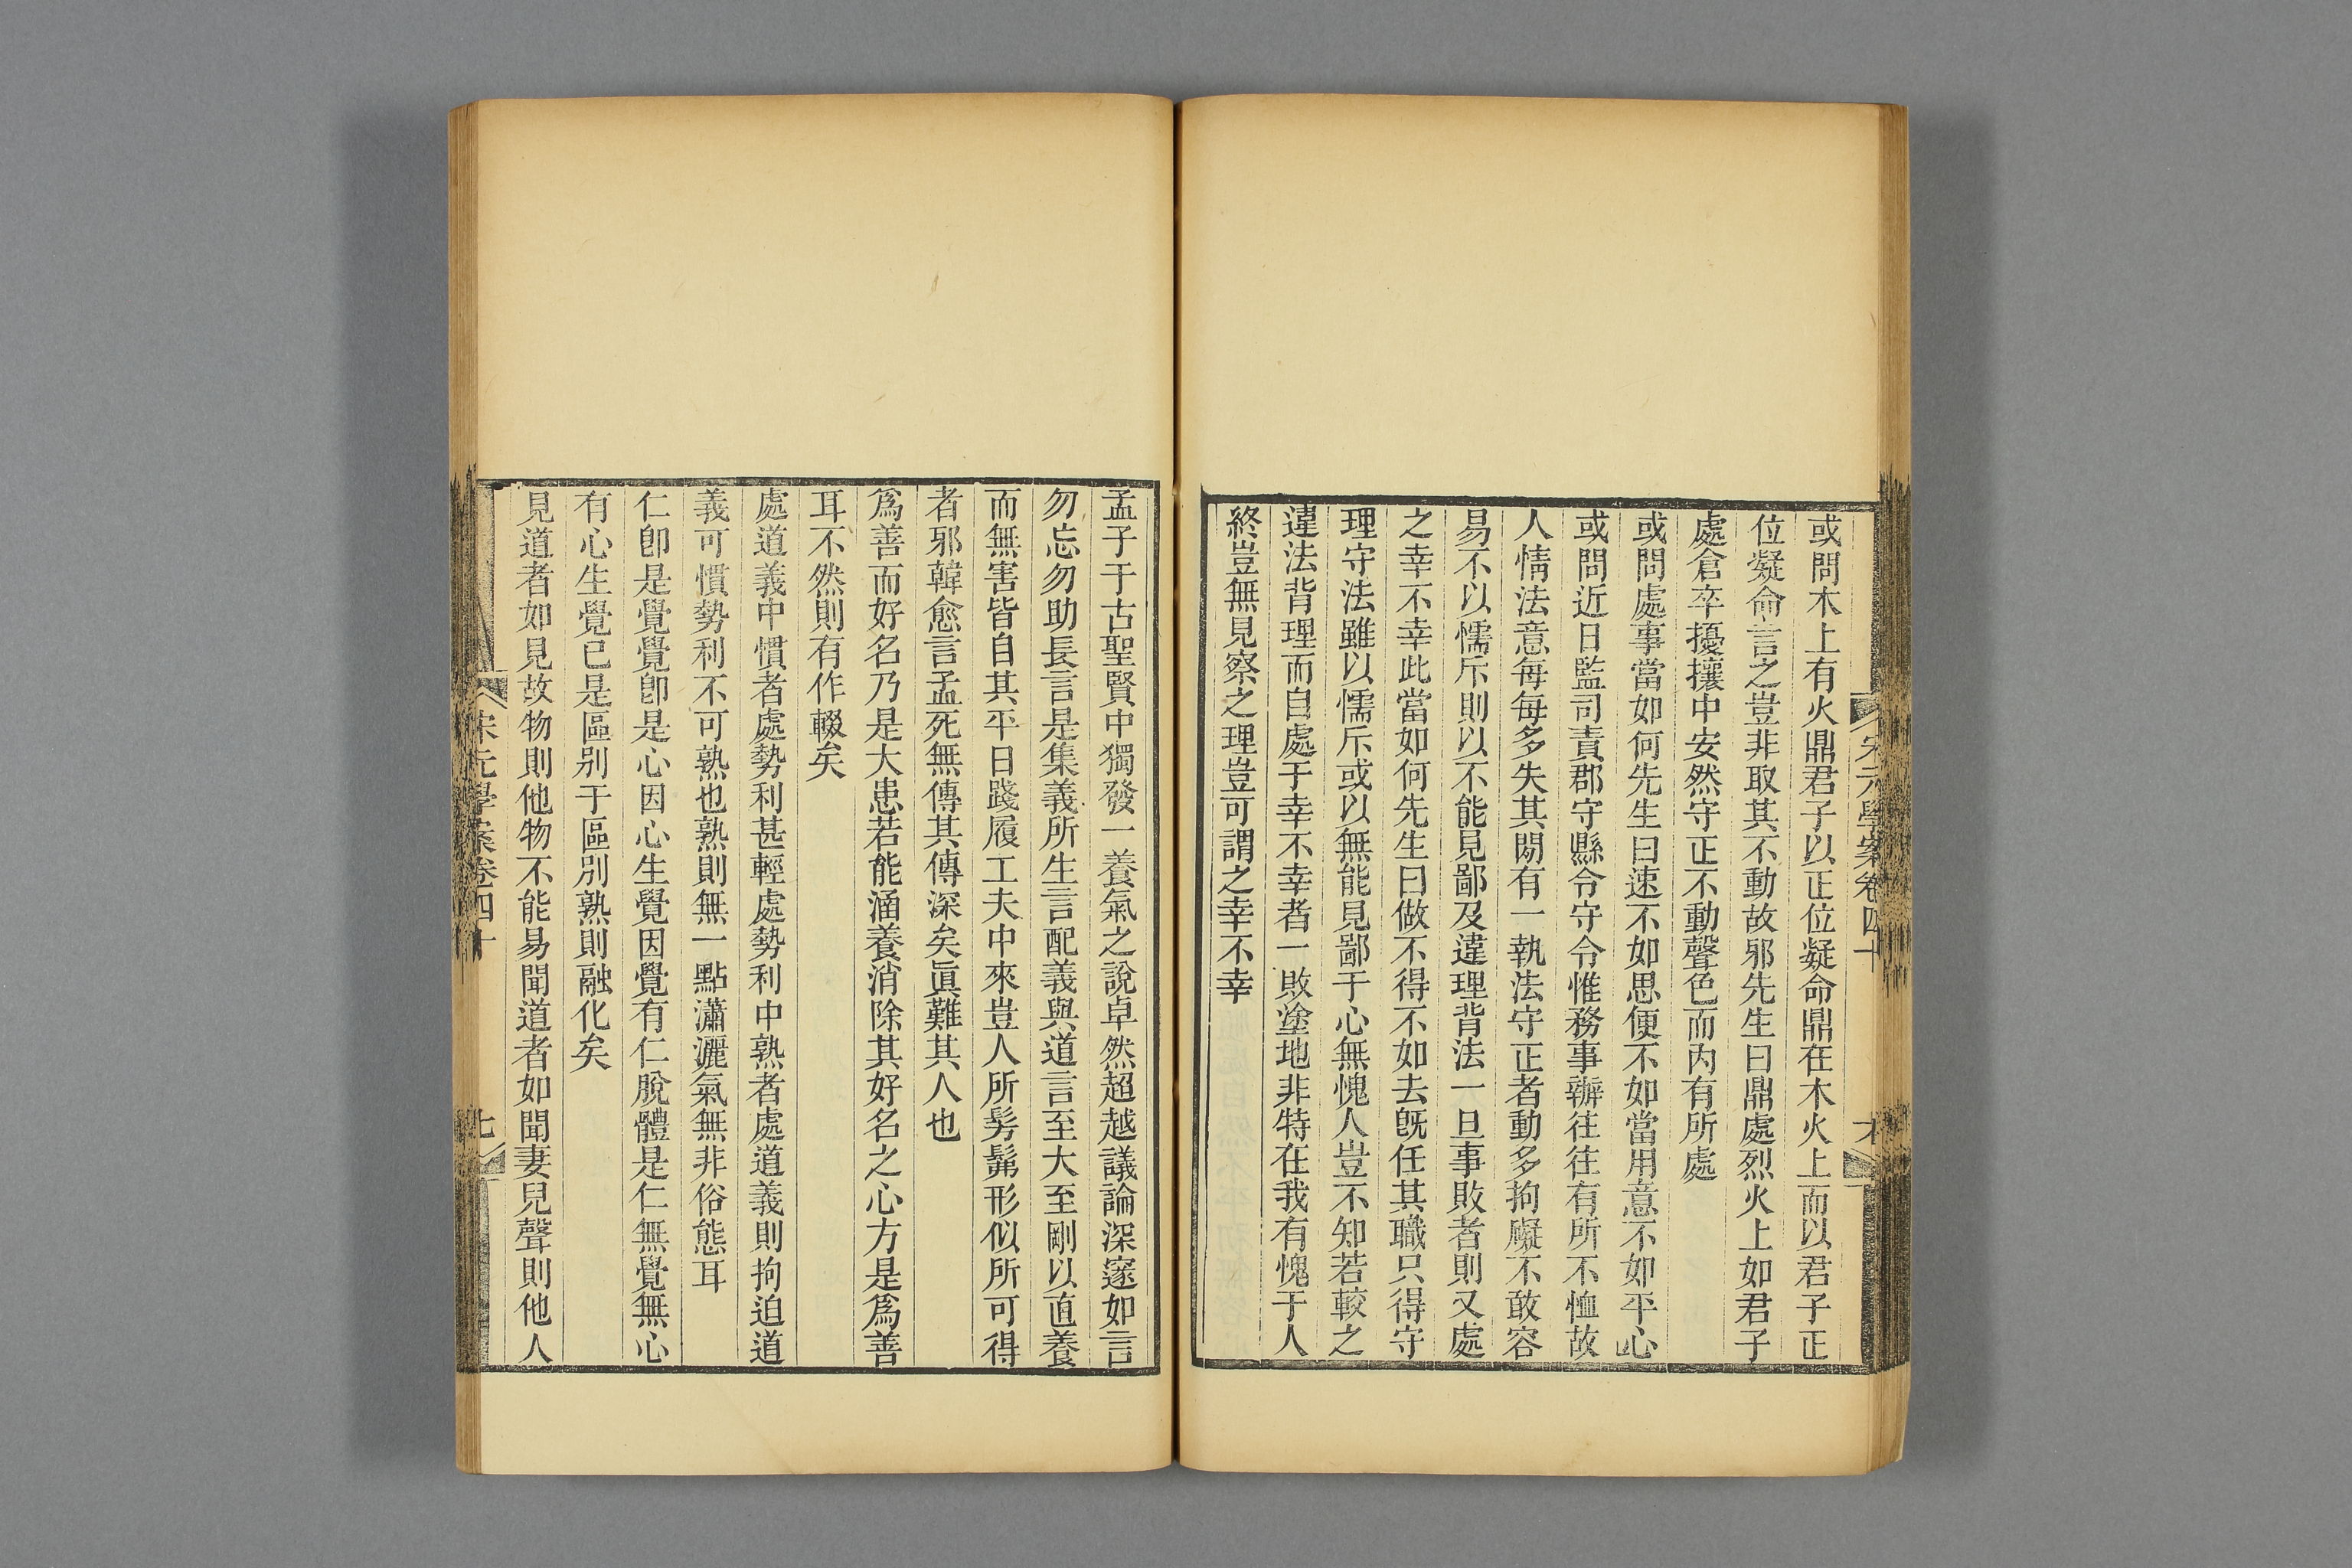 宋元學案卷四十
或問木上有火鼎君子以正位凝命鼎在木火上而以君子正
位凝命言之豈非取其不動故邪先生曰鼎處烈火上如君子
處倉卒擾攘中安然守正不動聲色而內有所處
或問處事當如何先生曰速不如思便不如當用意不如平心
或問近日監司責郡守縣令守令惟務事辦往往有所不恤故
人情法意每每多失其閒有一執法守正者動多拘礙不敢容
易不以懦斥則以不能見鄙及違理背法一旦事敗者則又處
之幸不幸此當如何先生曰做不得不如去旣任其職只得守
理守法雖以懦斥或以無能見鄙于心無愧人豈不知若較之
違法背理而自處于幸不幸者一敗塗地非特在我有愧于人
終豈無見察之理豈可謂之幸不幸
孟子于古聖賢中獨發一養氣之說卓然超越議論深邃如言
勿忘勿助長言是集義所生言配義與道言至大至剛以直養
而無害皆自其平日踐履工夫中來豈人所髣髴形似所可得
者邪韓愈言孟死無傳其傳深矣眞難其人也
爲善而好名乃是大患若能涵養消除其好名之心方是爲善
耳不然則有作輟矣
處道義中慣者處勢利甚輕處勢利中熟者處道義則拘迫道
義可慣勢利不可熟也熟則無一點瀟灑氣無非俗態耳
仁卽是覺覺卽是心因心生覺因覺有仁脫體是仁無覺無心
有心生覺已是區别于區別熟則融化矣
見道者如見故物則他物不能易聞道者如聞妻兒聲則他人
宋元學案卷四十
七